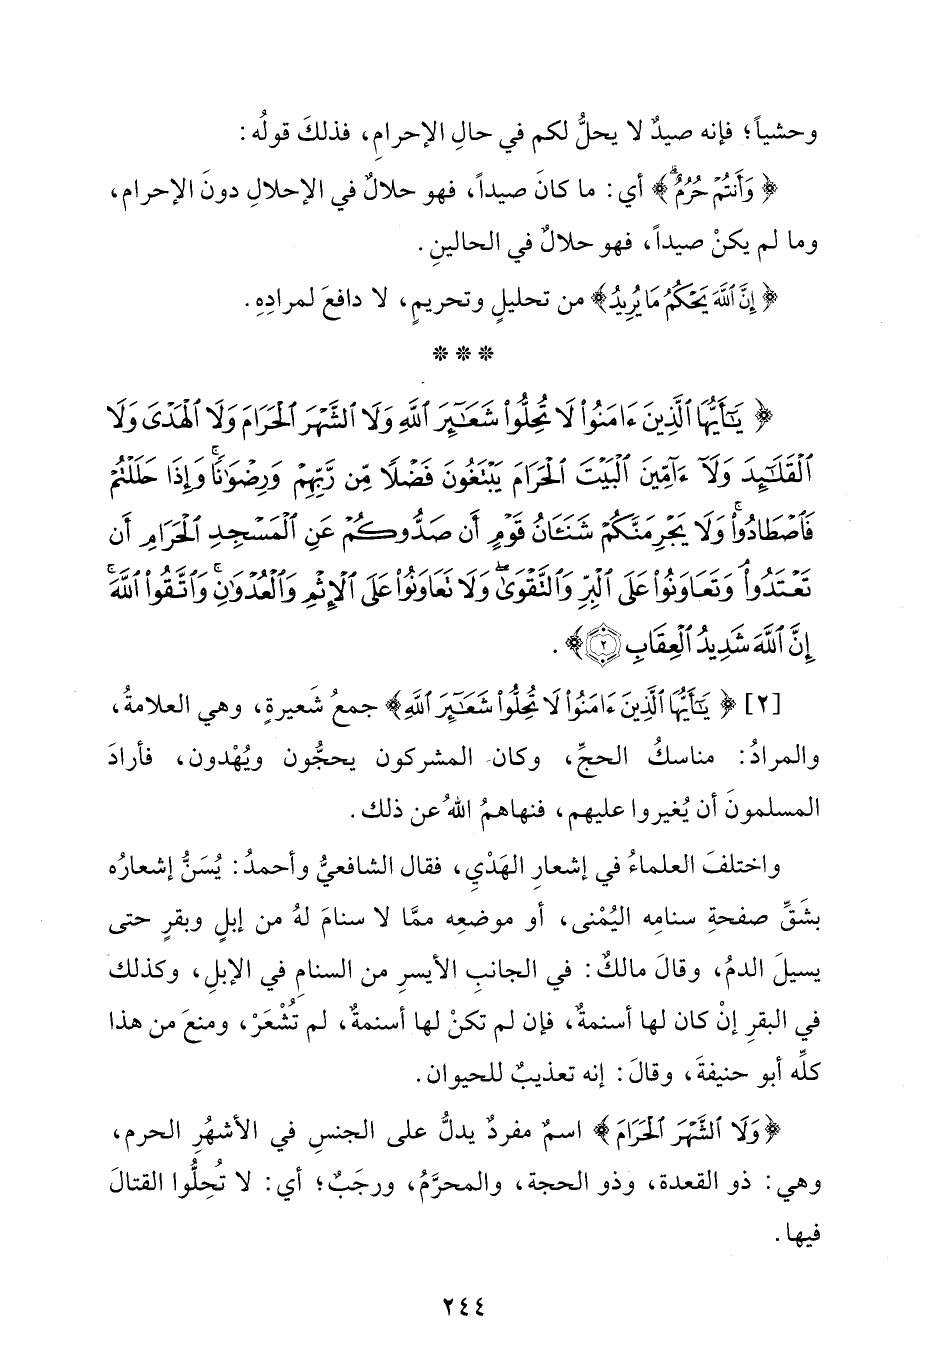 وحشياً؛ فإنه صيدٌ لا يحلُّ لكم في حالِ الإحرامِ، فذلكَ قولُه:
﴿وَأَنتُمْ حُرُمٌ﴾ أي: ما كانَ صيداً، فهو حلالٌ في الإحلالِ دونَ الإحرام،
وما لم يكنْ صيداً، فهو حلالٌ في الحالينِ.
﴿إِنَّ ٱللَّهَ يَحْكُمُ مَا يُرِيدُ﴾ من تحليلٍ وتحريمٍ، لا دافعَ لمرادِهِ.
* * *
﴿يَٰٓأَيُّهَا ٱلَّذِينَ ءَامَنُوا۟ لَا تُحِلُّوا۟ شَعَٰٓئِرَ ٱللَّهِ وَلَا ٱلشَّهْرَ ٱلْحَرَامَ وَلَا ٱلْهَدْىَ وَلَا
ٱلْقَلَٰٓئِدَ وَلَآ ءَآمِّينَ ٱلْبَيْتَ ٱلْحَرَامَ يَبْتَغُونَ فَضْلًا مِّن رَّبِّهِمْ وَرِضْوَٰنًا ۚ وَإِذَا حَلَلْتُمْ
فَٱصْطَادُوا۟ ۚ وَلَا يَجْرِمَنَّكُمْ شَنَـَٔانُ قَوْمٍ أَن صَدُّوكُمْ عَنِ ٱلْمَسْجِدِ ٱلْحَرَامِ أَن
تَعْتَدُوا۟ ۘ وَتَعَاوَنُوا۟ عَلَى ٱلْبِرِّ وَٱلتَّقْوَىٰ ۖ وَلَا تَعَاوَنُوا۟ عَلَى ٱلْإِثْمِ وَٱلْعُدْوَٰنِ ۚ وَٱتَّقُوا۟ ٱللَّهَ ۖ
إِنَّ ٱللَّهَ شَدِيدُ ٱلْعِقَابِ ٢﴾.
[٢] ﴿يَٰٓأَيُّهَا ٱلَّذِينَ ءَامَنُوا۟ لَا تُحِلُّوا۟ شَعَٰٓئِرَ ٱللَّهِ﴾ جمعُ شَعيرةٍ، وهي العلامةُ،
والمرادُ: مناسكُ الحجِّ، وكان المشركون يحجُّون ويُهْدون، فأرادَ
المسلمونَ أن يُغيروا عليهم، فنهاهمُ اللهُ عن ذلك.
واختلفَ العلماءُ في إشعارِ الهَدْيِ، فقال الشافعيُّ وأحمدُ: يُسَنُّ إشعارُه
بشَقِّ صفحةِ سنامِه اليُمْنى، أو موضعِه ممَّا لا سنامَ لهُ من إبلٍ وبقرٍ حتى
يسيلَ الدمُ، وقالَ مالكٌ: في الجانبِ الأيسرِ من السنامِ في الإبلِ، وكذلك
في البقرِ إنْ كان لها أسنمةٌ، فإن لم تكنْ لها أسنمةٌ، لم تُشْعَرْ، ومنعَ من هذا
كلِّه أبو حنيفةَ، وقالَ: إنه تعذيبٌ للحيوان.
﴿وَلَا ٱلشَّهْرَ ٱلْحَرَامَ﴾ اسمٌ مفردٌ يدلُّ على الجنسِ في الأشهُرِ الحرم،
وهي: ذو القعدة، وذو الحجة، والمحرَّمُ، ورجَبٌ؛ أي: لا تُحِلُّوا القتالَ
فيها.
٢٤٤